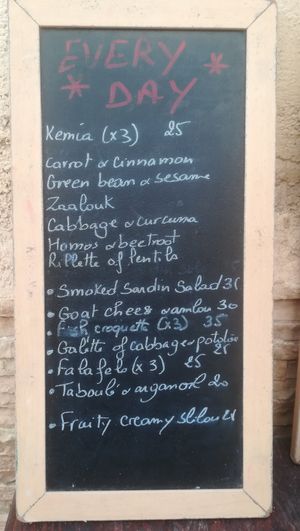 EVERY
* DAY *
Kemia (x3) 25
Carrot & Cinnamon
Green bean & sesame
Zaalouk
Cabbage & curcuma
Homos & beetroot
Rillette of lentils
• Smoked Sardin Salad
• Goat chees & amlou 30
• Fish croquette (x3) 35
• Galette of cabbage &
• Falafels (x3) 25
• Taboulé & arganoil 20
• Fruity creamy